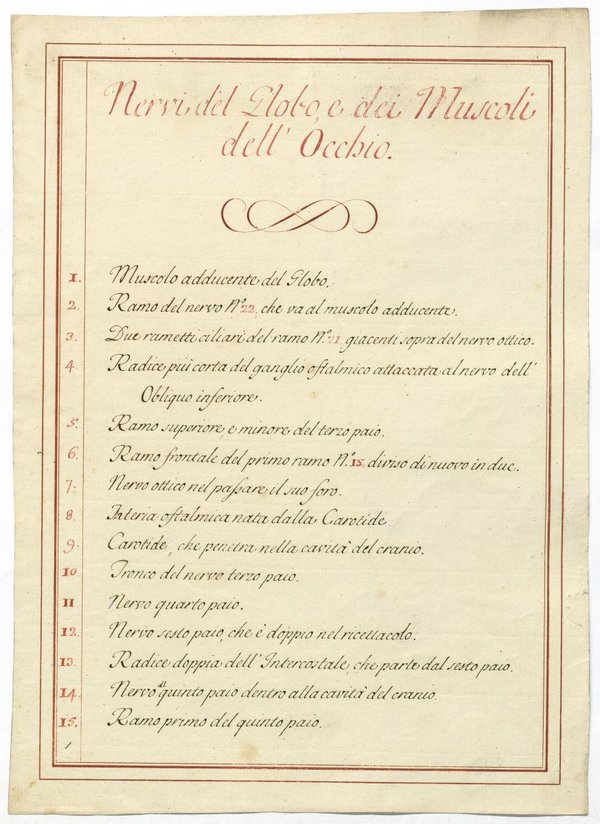 Nervi del Globo, e dei Muscoli
dell' Occhio.
1. Muscolo adducente del Globo.
2. Ramo del nervo N.º 22, che va al muscolo adducente.
3. Due rametti ciliari del ramo N.º 21, giacenti sopra del nervo ottico.
4. Radice più corta del ganglio oftalmico attaccata al nervo dell'
Obliquo inferiore.
5. Ramo superiore, e minore del terzo paio.
6. Ramo frontale del primo ramo N.º 15, diviso di nuovo in due.
7. Nervo ottico nel passare il suo foro.
8. Arteria oftalmica nata dalla Carotide
9. Carotide, che penetra nella cavità del cranio.
10. Tronco del nervo terzo paio.
11 Nervo quarto paio.
12. Nervo sesto paio, che è doppio nel ricettacolo.
13. Radice doppia dell' Intercostale, che parte dal sesto paio.
14. Nervo quinto paio dentro alla cavità del cranio.
15. Ramo primo del quinto paio.